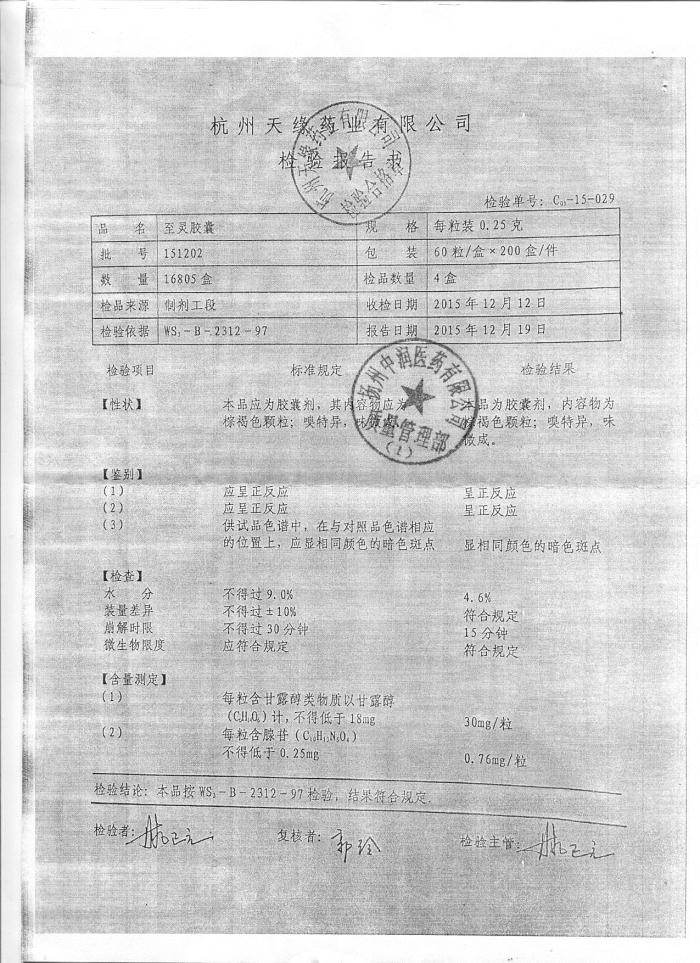 杭州天缘药业有限公司
检验报告书
杭州天缘药业有限公司
检验合格章
检验单号：C₀₃-15-029
品 名 至灵胶囊 规 格 每粒装 0.25 克
批 号 151202 包 装 60 粒/盒×200 盒/件
数 量 16805 盒 检品数量 4 盒
检品来源 制剂工段 收检日期 2015 年 12 月 12 日
检验依据 WS₃－B－2312－97 报告日期 2015 年 12 月 19 日
检验项目 标准规定 检验结果
扬州中润医药有限公司
质量管理部
(1)
【性状】 本品应为胶囊剂，其内容物应为 本品为胶囊剂，内容物为
棕褐色颗粒；嗅特异，味 棕褐色颗粒；嗅特异，味
微咸。
【鉴别】
(1) 应呈正反应 呈正反应
(2) 应呈正反应 呈正反应
(3) 供试品色谱中，在与对照品色谱相应
的位置上，应显相同颜色的暗色斑点 显相同颜色的暗色斑点
【检查】
水 分 不得过 9.0% 4.6%
装量差异 不得过±10% 符合规定
崩解时限 不得过 30 分钟 15 分钟
微生物限度 应符合规定 符合规定
【含量测定】
(1) 每粒含甘露醇类物质以甘露醇
(C₆H₁₄O₆) 计，不得低于 18mg 30mg/粒
(2) 每粒含腺苷 (C₁₀H₁₃N₅O₄)
不得低于 0.25mg 0.76mg/粒
检验结论：本品按 WS₃－B－2312－97 检验，结果符合规定.
检验者： 复核者：郭玲 检验主管：